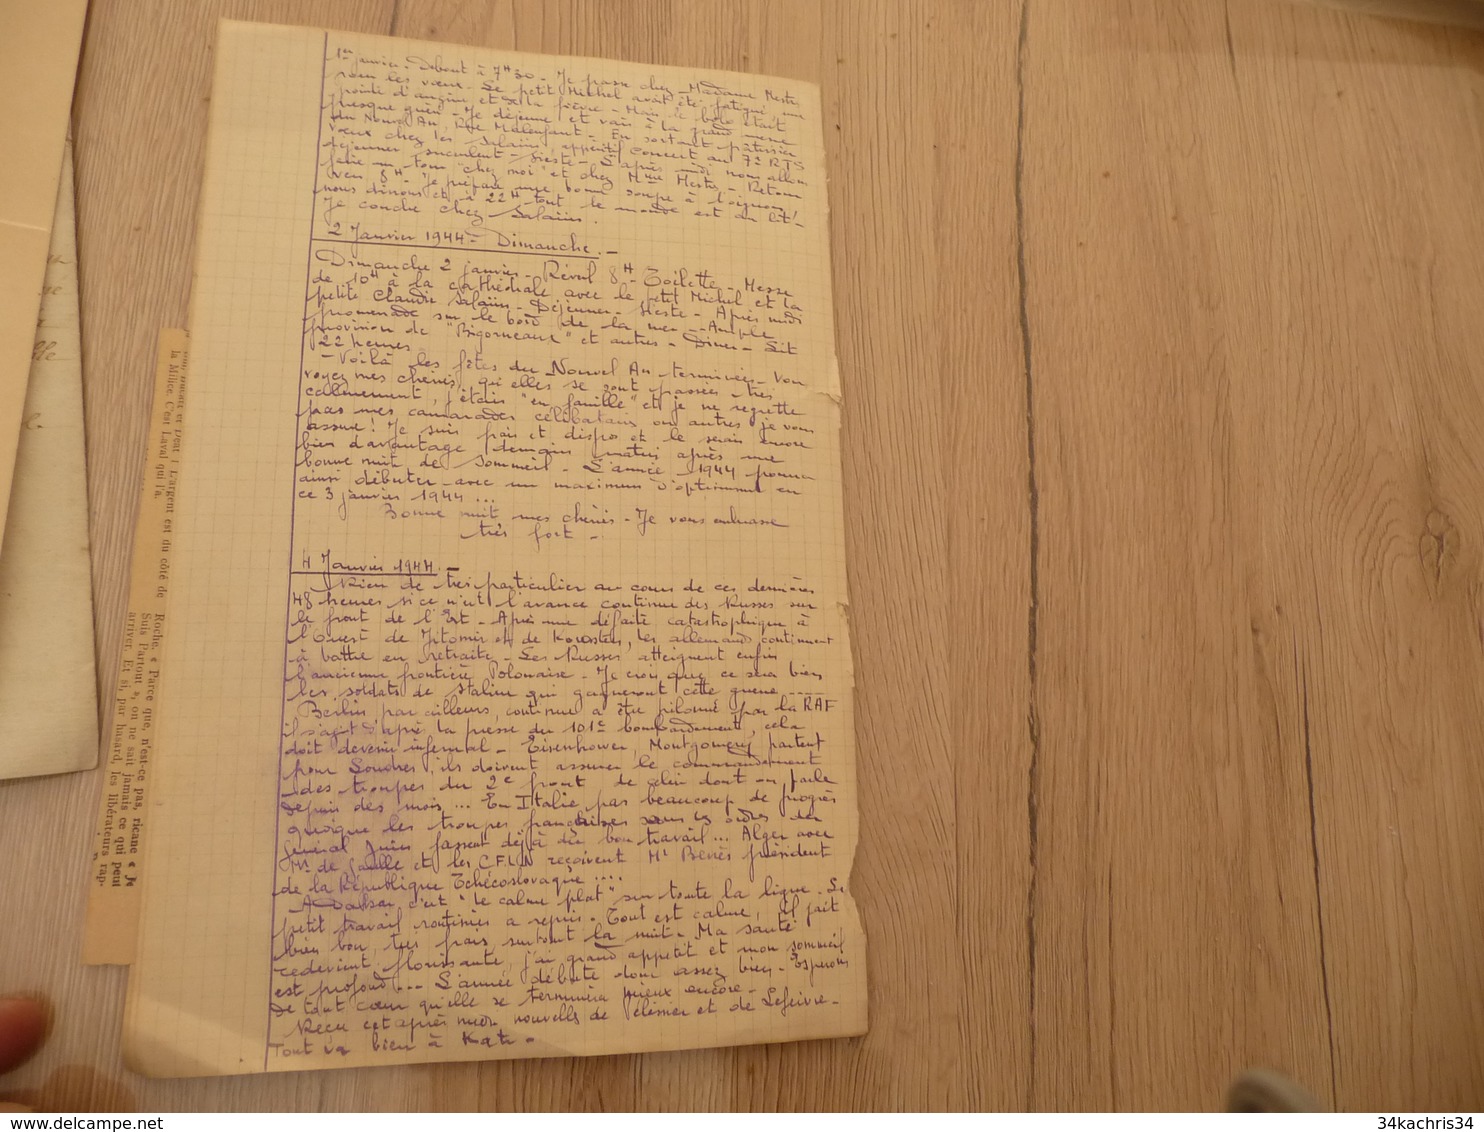 1er janvier. Debout à 7H30 - Je passe chez Madame Mestre
pour les vœux. Le petit Michel avait été fatigué, une
pointe d'angine et de la fièvre - Mais le bébé était
presque guéri - Je déjeune et vais à la grand messe
du Nouvel An, Rue Malenfant - En sortant pâtissier
vœux chez les Salaün, apéritif Concert au 7e RTS
Déjeuner succulent - Sieste - L'après-midi nous allons
faire un tour "chez moi" et chez Mme Mestre - Retour
vers 8H - Je prépare une bonne soupe à l'oignon!
nous dînons et à 22H tout le monde est au lit -
Je couche chez Salaün.
2 Janvier 1944 - Dimanche. -
Dimanche 2 janvier - Réveil 8H - Toilette - Messe
de 10H à la cathédrale avec le petit Michel et la
petite Claudie Salaün - Déjeuner - Sieste - Après midi
promenade sur le bord de la mer - Ample
provision de "Bigorneaux" et autres - Diner - Lit
22 heures
- Voilà les fêtes du Nouvel An terminées - Vous
voyez mes chéris, qu'elles se sont passées très
calmement, j'étais "en famille" et je ne regrette
pas mes camarades célibataux ou autres je vous
assure! Je suis frais et dispo et le serai encore
bien davantage demain matin après une
bonne nuit de sommeil - L'année 1944 pourra
ainsi débuter avec un maximum d'optimisme en
ce 3 janvier 1944 ...
Bonne nuit mes chéris - Je vous embrasse
très fort -
4 Janvier 1944. -
Rien de très particulier au cours de ces dernières
48 heures si ce n'est l'avance continue des Russes sur
le front de l'Est - Après une défaite catastrophique à
l'Ouest de Jitomir et de Korosten, les allemands continuent
à battre en retraite - Les Russes atteignent enfin
l'ancienne frontière Polonaise - Je crois que ce sera bien
les soldats de Staline qui gagneront cette guerre ----
Berlin, par ailleurs, continue a être pilonné par la RAF
il s'agit d'après la presse du 101e bombardement, cela
doit devenir infernal - Eisenhower, Montgomery partent
pour Londres, ils doivent assurer le commandement
des troupes du 2e front, de celui dont on parle
depuis des mois ... En Italie pas beaucoup de progrès
quoique les troupes françaises sous les ordres du
Général Juin fassent déjà du bon travail ... Alger avec
Mr de Gaulle et les C.F.L.N reçoivent Mr Benès président
de la République Tchécoslovaque ....
A Dakar c'est "le calme plat" sur toute la ligne. Le
petit travail routinier a repris - Tout est calme, il fait
bien bon, très frais surtout la nuit - Ma santé
redevient florissante, j'ai grand appetit et mon sommeil
est profond ... L'année débute donc assez bien - Espérons
de tout cœur qu'elle se terminera mieux encore -
Reçu cet après midi nouvelles de Pélissier et de Lefeivre -
Tout va bien à Kati -
la Milice. C'est Laval qui l'a.
L'argent est du côté de
Roche, « Parce que, n'est-ce pas, ricane « Je
Suis Partout », on ne sait jamais ce qui peut
arriver. Et si, par hasard, les libérateurs rap-
34kachris34